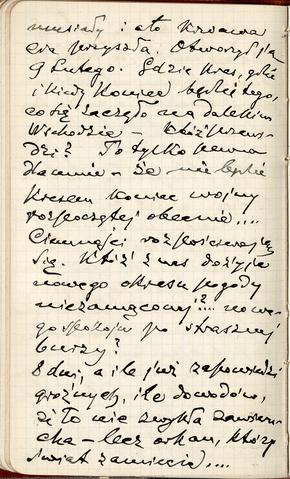 musiały : oto krwawa
era przyszła. Otworzył ją
9 Lutego. Gdzie kres, gdzie
i kiedy koniec będzie tego,
co się zaczęło na dalekim
Wschodzie – któż przewi-
dzi? To tylko pewna
dla mnie – że nie będzie
kresem koniec wojny
rozpoczętej obecnie....
Ciemności rozpościerają
się. Któż z nas dożyje
nowego okresu pogody
niezamąconej?.... nowe-
go spokoju po strasznej
burzy?
8 dni, a ile już zapowiedzi
groźnych, ile dowodów,
że to nie zwykła zawieru-
cha – lecz orkan, który
świat zamiecie....